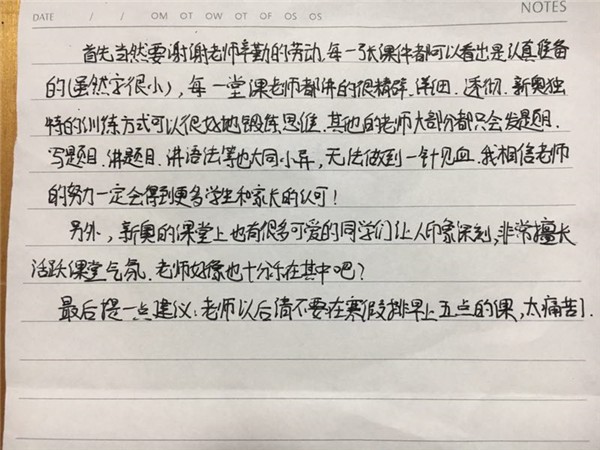 DATE / / OM OT OW OT OF OS OS NOTES
首先当然要谢谢老师辛勤的劳动,每一张课件都可以看出是认真准备
的(虽然字很小),每一堂课老师都讲的很精辟、详细、透彻.新奥独
特的训练方式可以很好地锻炼思维.其他的老师大部分都只会发题目.
写题目.讲题目.讲语法等也大同小异,无法做到一针见血.我相信老师
的努力一定会得到更多学生和家长的认可!
另外,新奥的课堂上也有很多可爱的同学们让人印象深刻,非常擅长
活跃课堂气氛.老师好像也十分乐在其中吧?
最后提一点建议:老师以后请不要在寒假排早上五点的课,太痛苦了.